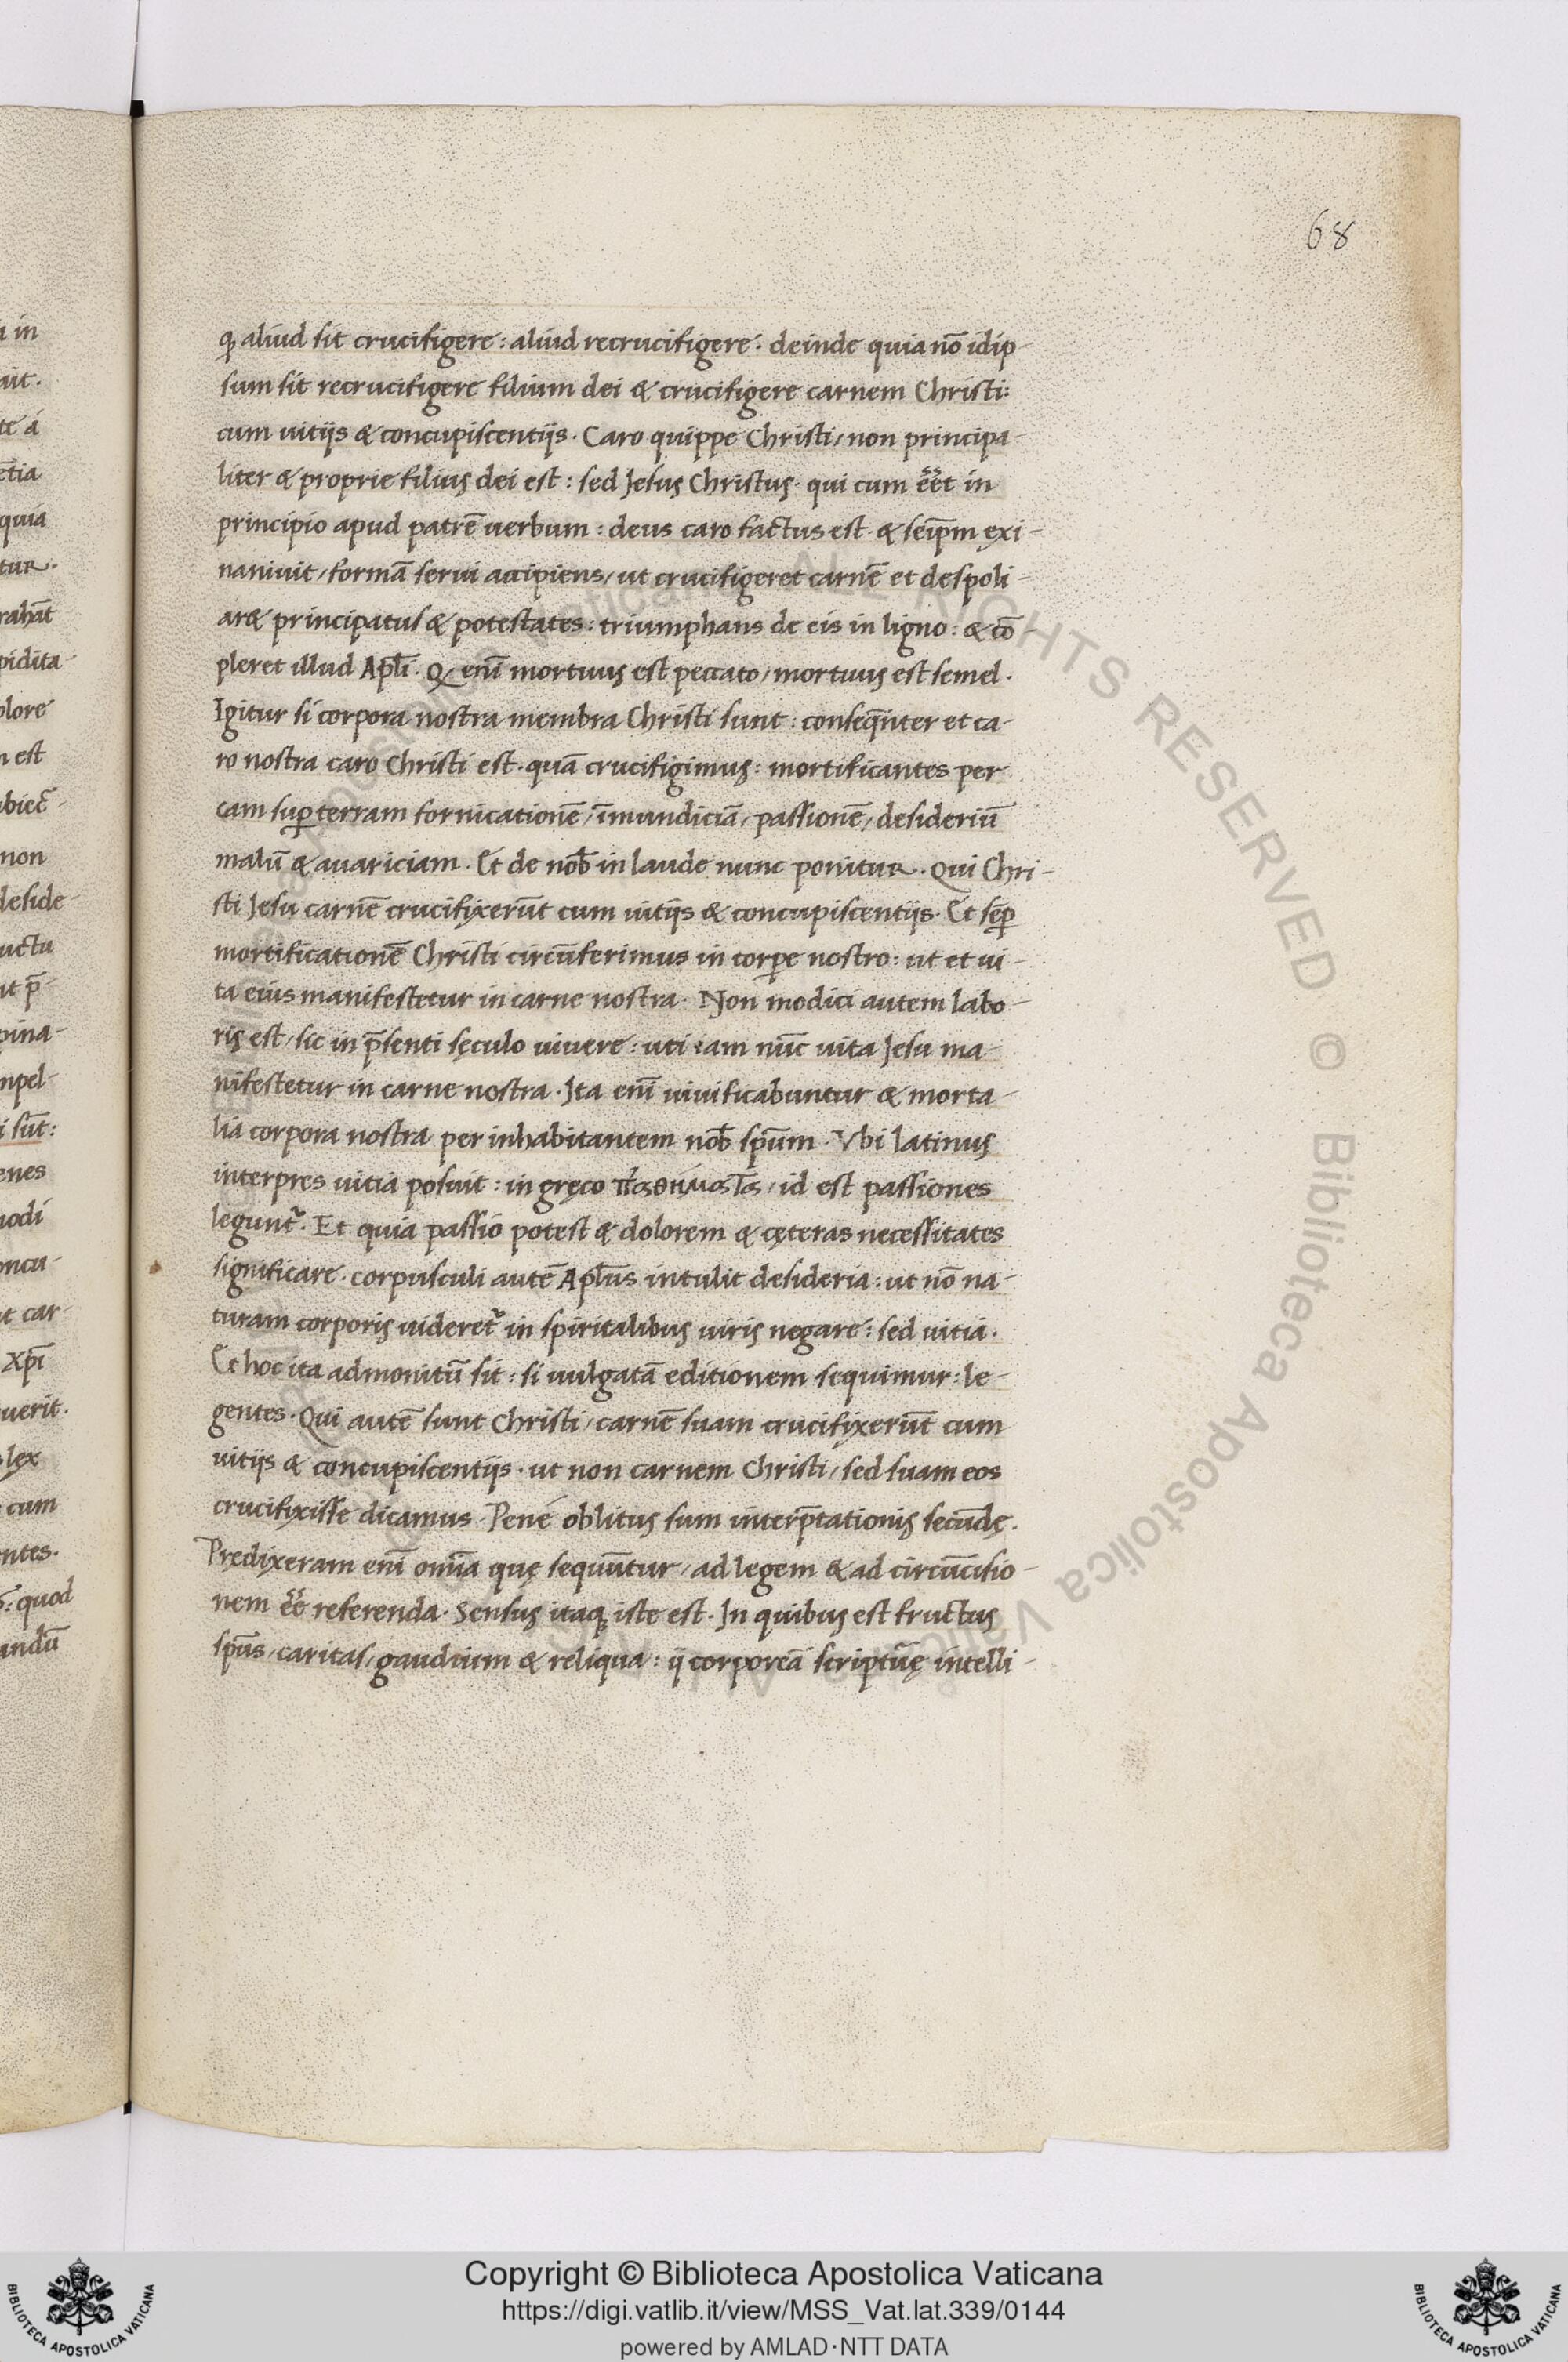 68
ꝙ aliud sit crucifigere: aliud recrucifigere. deinde quia nō idip-
sum sit recrucifigere filium dei & crucifigere carnem Christi:
cum uitijs & concupiscentijs. Caro quippe Christi, non principa-
liter & proprie filius dei est: sed Jesus Christus. qui cum eēt in
principio apud patrē uerbum: deus caro factus est. & seip̄m exi-
naniuit, formā serui accipiens, ut crucifigeret carnē et despoli-
aret principatus & potestates: triumphans de eis in ligno: & cō-
pleret illud Apl̄i. Q enī mortuus est peccato, mortuus est semel.
Igitur si corpora nostra membra Christi sunt: conseq̄nter et ca-
ro nostra caro Christi est. quā crucifigimus: mortificantes per
eam suꝑ terram fornicationē, īmundiciā, passionē, desideriū
malū & auariciam. Et de nob̄ in laude nunc ponitur. Qui Chri-
sti Jesu carnē crucifixerūt cum uitijs & concupiscentijs. Et semꝑ
mortificationē Christi circūferimus in corꝑe nostro: ut et ui-
ta eius manifestetur in carne nostra. Non modici autem labo-
ris est, sic in p̄senti sęculo uiuere: uti iam nūc uita Jesu ma-
nifestetur in carne nostra. Ita enī uiuificabuntur & morta-
lia corpora nostra per inhabitantem nob̄ sp̄um. Vbi latinus
interpres uitia posuit: in gręco παθήματα, id est passiones
legunt᷑. Et quia passio potest & dolorem & cęteras necessitates
significare. corpusculi autē Apl̄us intulit desideria: ut nō na-
turam corporis uideret᷑ in spiritalibus uiris negare: sed uitia.
Et hoc ita admonitū sit: si uulgatā editionem sequimur: le-
gentes. Qui autē sunt Christi, carnē suam crucifixerūt cum
uitijs & concupiscentijs. ut non carnem Christi, sed suam eos
crucifixisse dicamus. Pene oblitus sum interp̄tationis secūdę.
Prędixeram enī omīa quę sequūtur, ad legem & ad circūcisio-
nem eē referenda. Sensus itaqꝫ iste est. In quibus est fructus
sp̄us, caritas, gaudium & reliqua: ij corporeā scriptūę intelli-
Copyright © Biblioteca Apostolica Vaticana
https://digi.vatlib.it/view/MSS_Vat.lat.339/0144
powered by AMLAD·NTT DATA